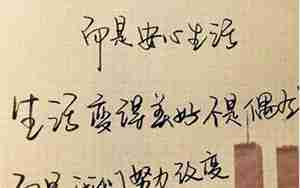 而是安心生活
生活变得美好不是偶然
而是我们努力改变